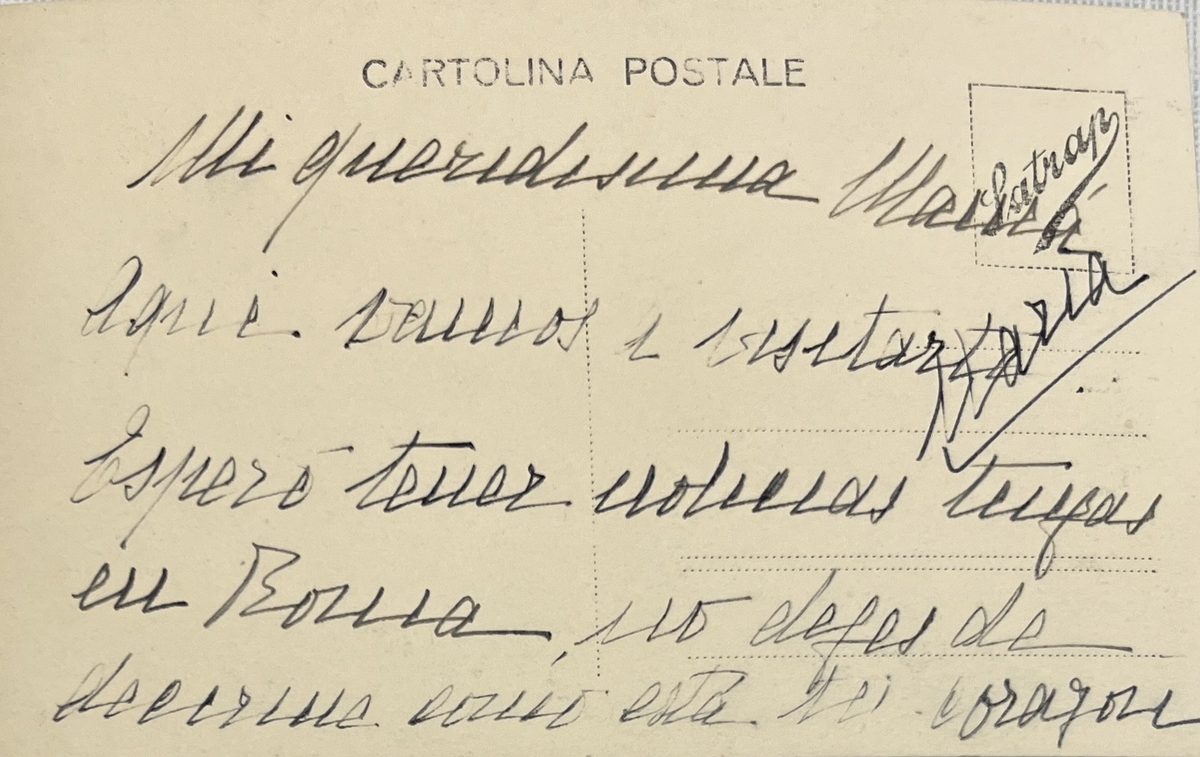 CARTOLINA POSTALE
Satrap
Mi queridisima Mamá
Aqui vamos a visitarla
María
Espero tener noticias tuyas
en Roma, no dejes de
decirme como está tu corazon